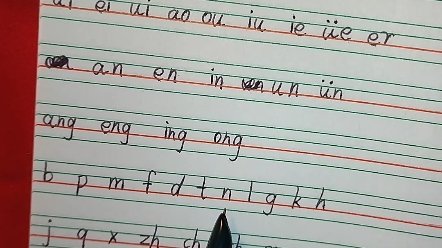 ai ei ui ao ou iu ie üe er
an en in un ün
ang eng ing ong
b p m f d t n l g k h
j q x zh ch